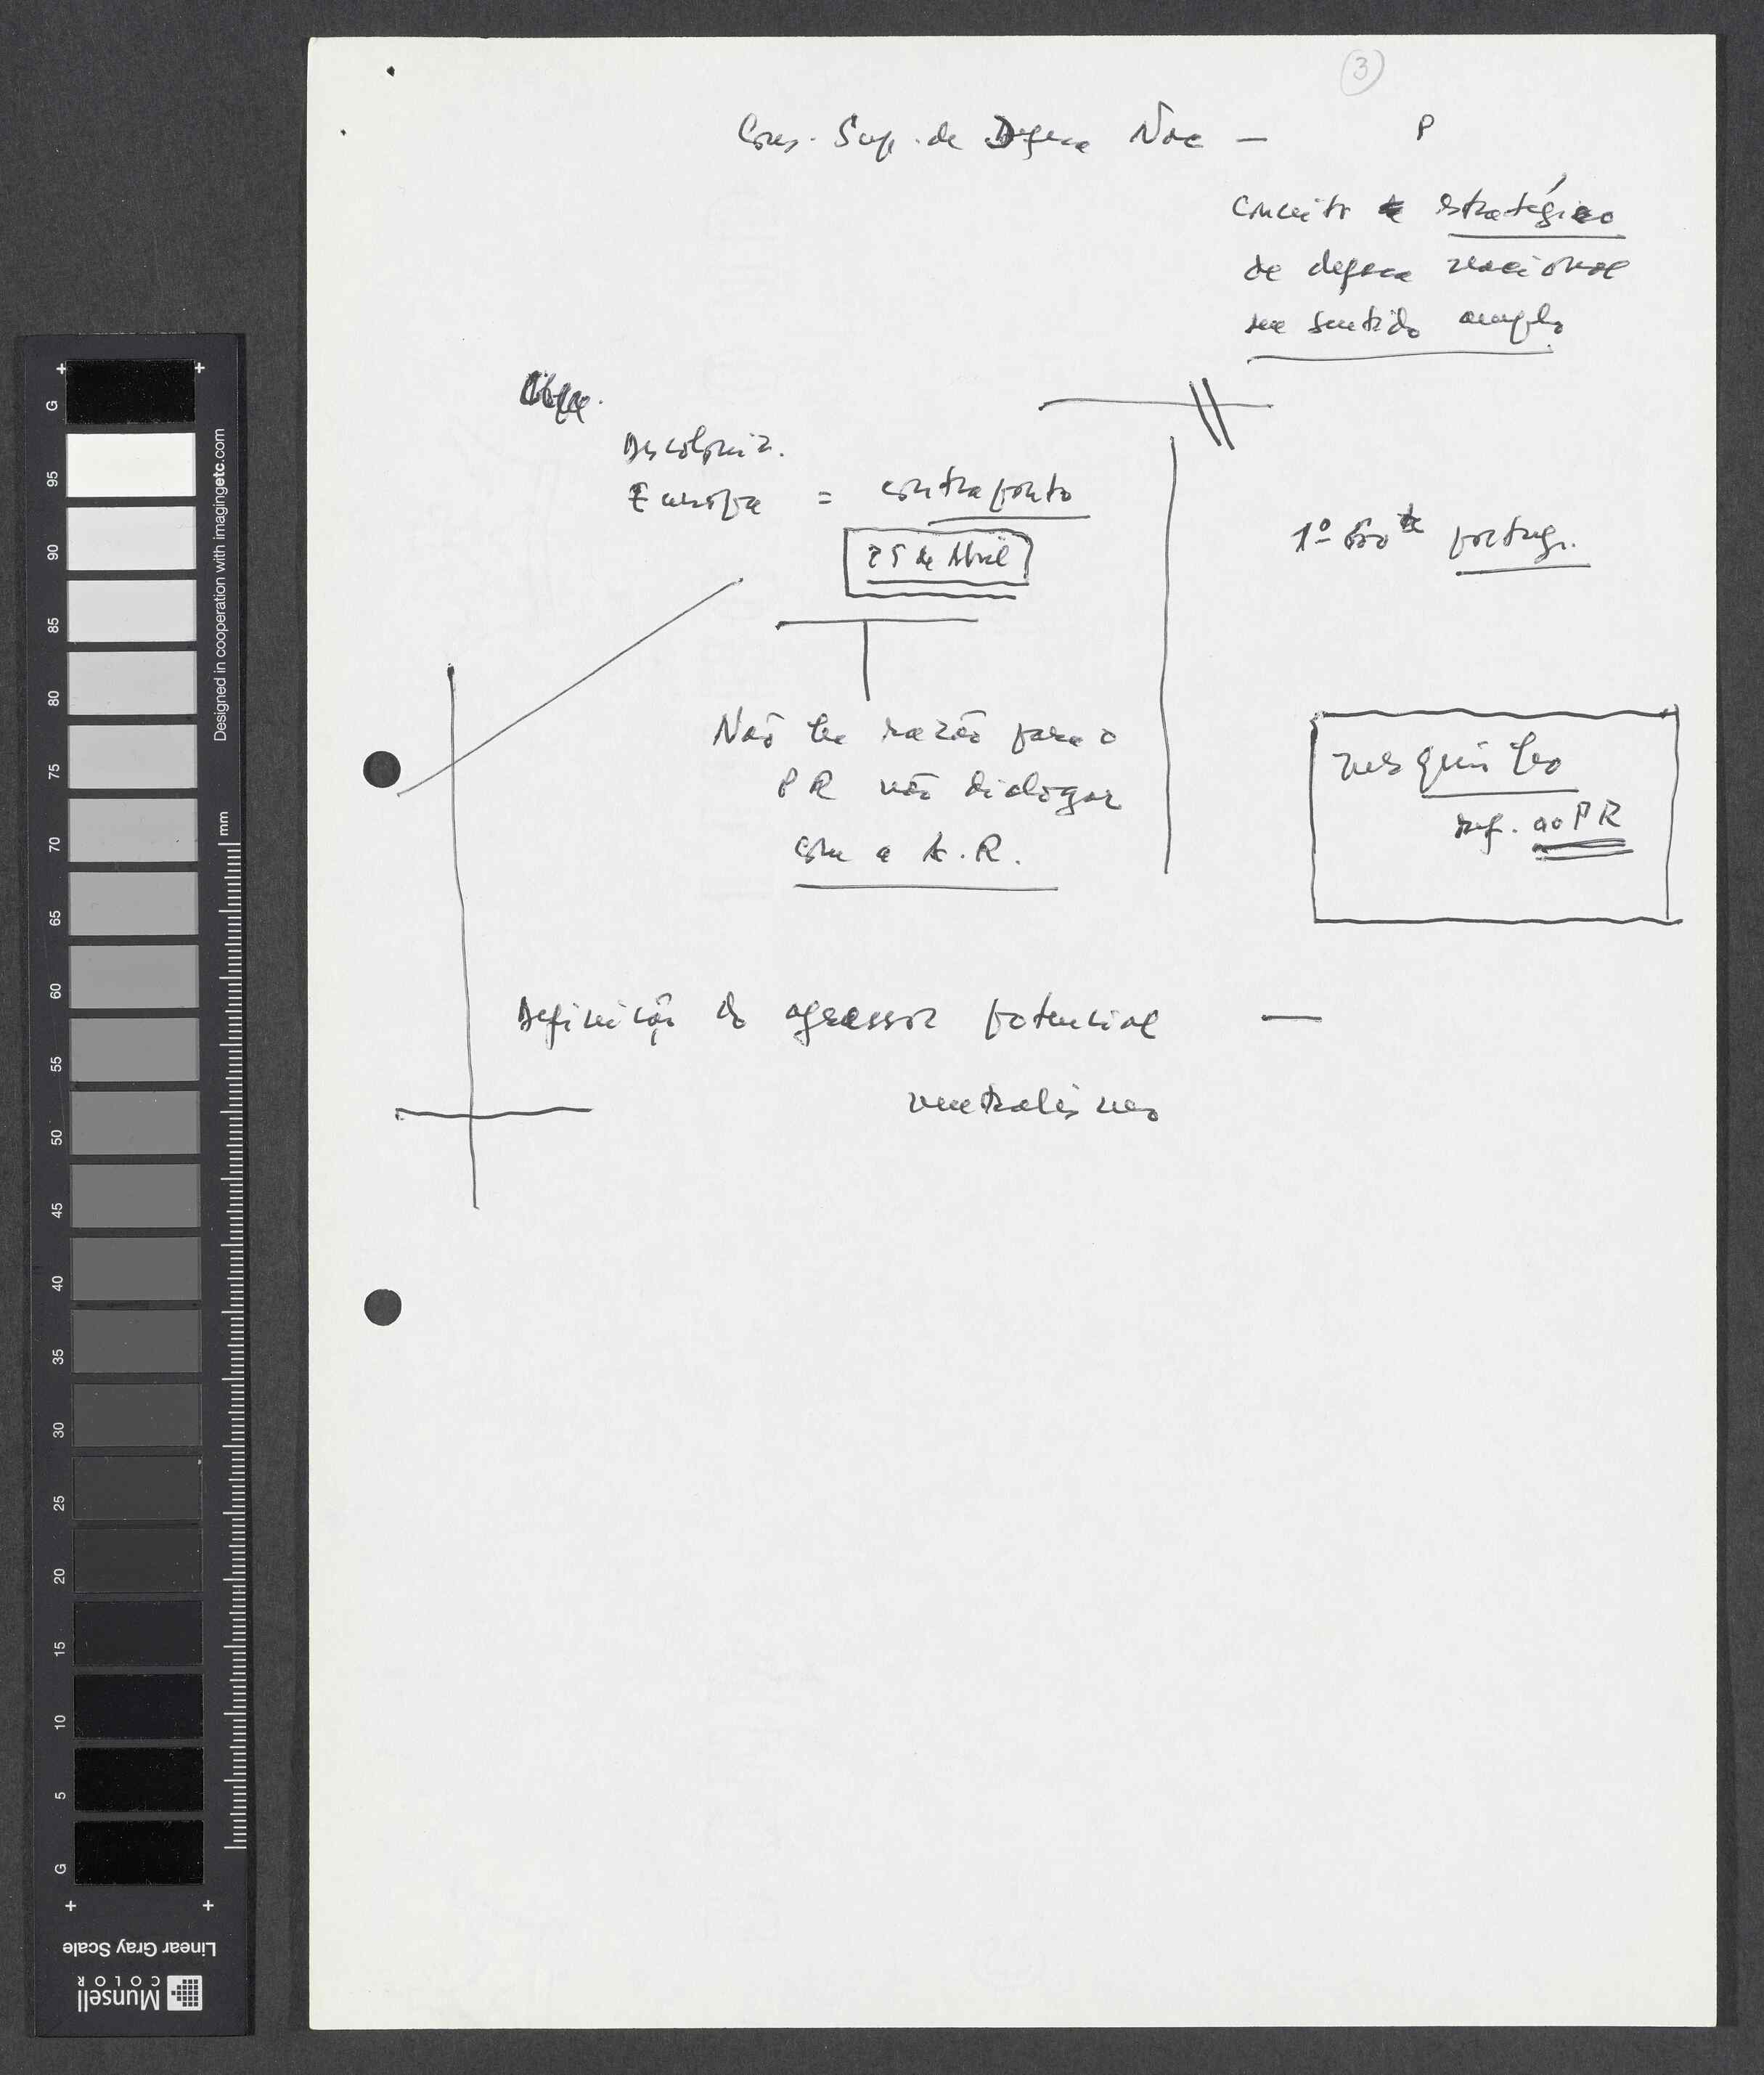 3
Cons. Sup. de Defesa Nac — P
conceito estratégico
de defesa nacional
em sentido amplo
Descoloniz.
Europa = contraponto
25 de Abril
1º portug.
Não há razão para o
PR não dialogar
com a A.R.
mesquinho
ref. ao PR
Definição do agressor potencial —
neutralismo
Designed in cooperation with imagingetc.com
mm
G
95
90
85
80
75
70
65
60
55
50
45
40
35
30
25
20
15
10
5
G
Linear Gray Scale
Munsell
COLOR